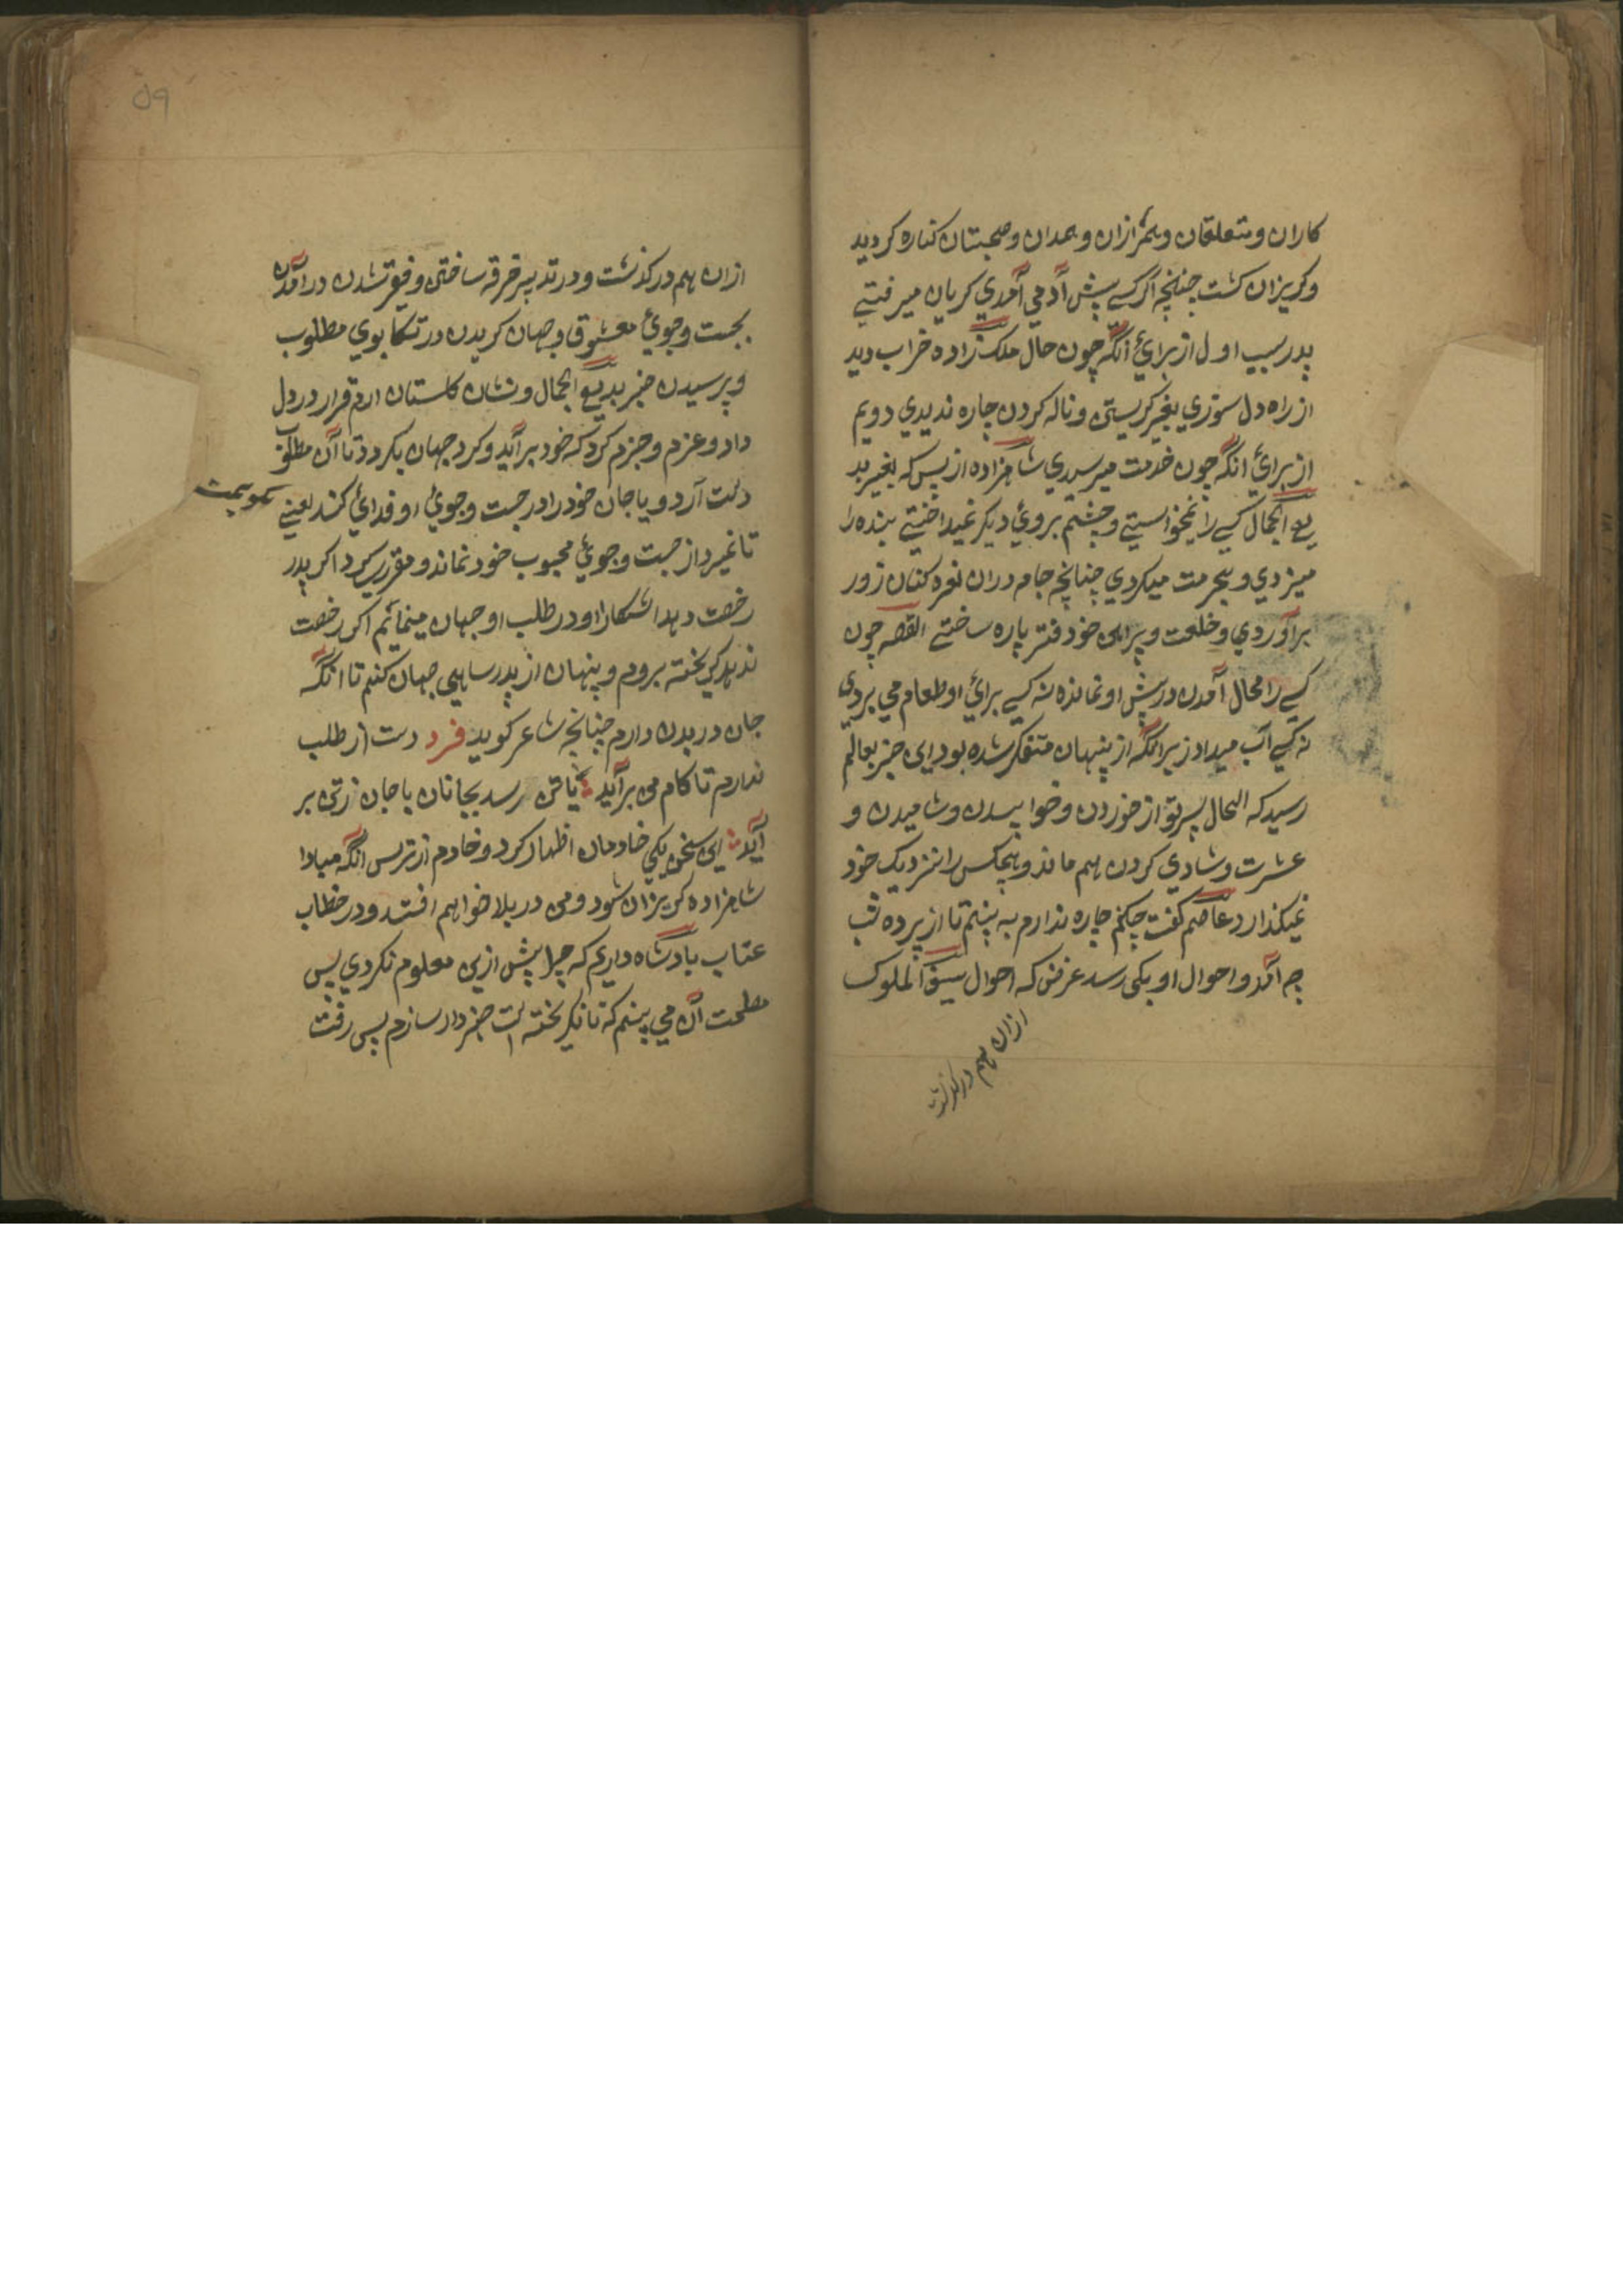 کاران و متعلقان و همرازان و همدان و صحبتان کناره کردید
و کریزان کشت چنانچه اکر کسے پیش آدمی آمدی کریان میرفتے
بدو سبب اول از برائ آنکه چون حال ملک زاده خراب دید
از راه دل سوزی بغیر کریستن و ناله کردن چاره ندیدی دویم
از برائ انکه چون خدمت میرسدی شاهزاده از بس که بغیر بد
یع الجمال کسے را نمیخواستے و چشم بروئ دیکر نمیداختے بنده را
میزدی و بیحرمت میکردی چنانچه جامه دران نعره کنان زور
برآوردی و خلعت و پیراهن خود فتر پاره ساختے القصه چون
کسے را محال آمدن در پیش او نمانده نه کسے برائ او طعام می بردی
نه کسے آب میداد زیرا انکه از پنهان متفکر شده بود این خبر بعالم
رسید که الحال پسر تو از خوردن و خوابیدن و شامیدن و
عشرت و شادی کردن هم ماند و هیچکس را نزدیک خود
نمیکذارد عاصم کفت چکنم چاره ندارم به بینم تا از پرده غیب
چه آمد و احوال او بکی رسد غرض که احوال سیف الملوک
ازان هم درکذشت
۵۹
ازان هم درکذشت و در تدبیر خرقه ساختن و فیقر شدن درآمدن
بجست و جوئ معشوق و جهان کریدن در تکابوی مطلوب
و پرسیدن خبر بدیع الجمال و نشان کلستان ارم قرار در دل
داد و عزم و جزم کرد که خود برآید و کرد جهان بکردد تا آن مطلوب
دست آرد و یا جان خود را در جست و جوئ او فدائ کند یعنے
تا غیر از جست و جوئ محبوب خود نماند و مقرر کرد اکر پدر
رخصت دهد اشکارا و در طلب او جهان مینمائم اکر رخصت
ندهد کریخته بروم و پنهان از پدر ساهی جهان کنم تا انکه
جان در بدن دارم چنانچه شاعر کوید فرد دست از طلب
ندارم تا کام من برآید یا تن رسد بجانان یا جان ز تن بر
آید این سخن یکی خادمان اظهار کرد و خادم از ترس انکه مبادا
شاهزاده کریزان شود و من در بلا خواهم افتد و در خطاب
عتاب بادشاه داریم که چرا پیش ازین معلوم نکردی پس
مصلحت آن می بینم که تا نکریخته است خبردار سازم پس رفت